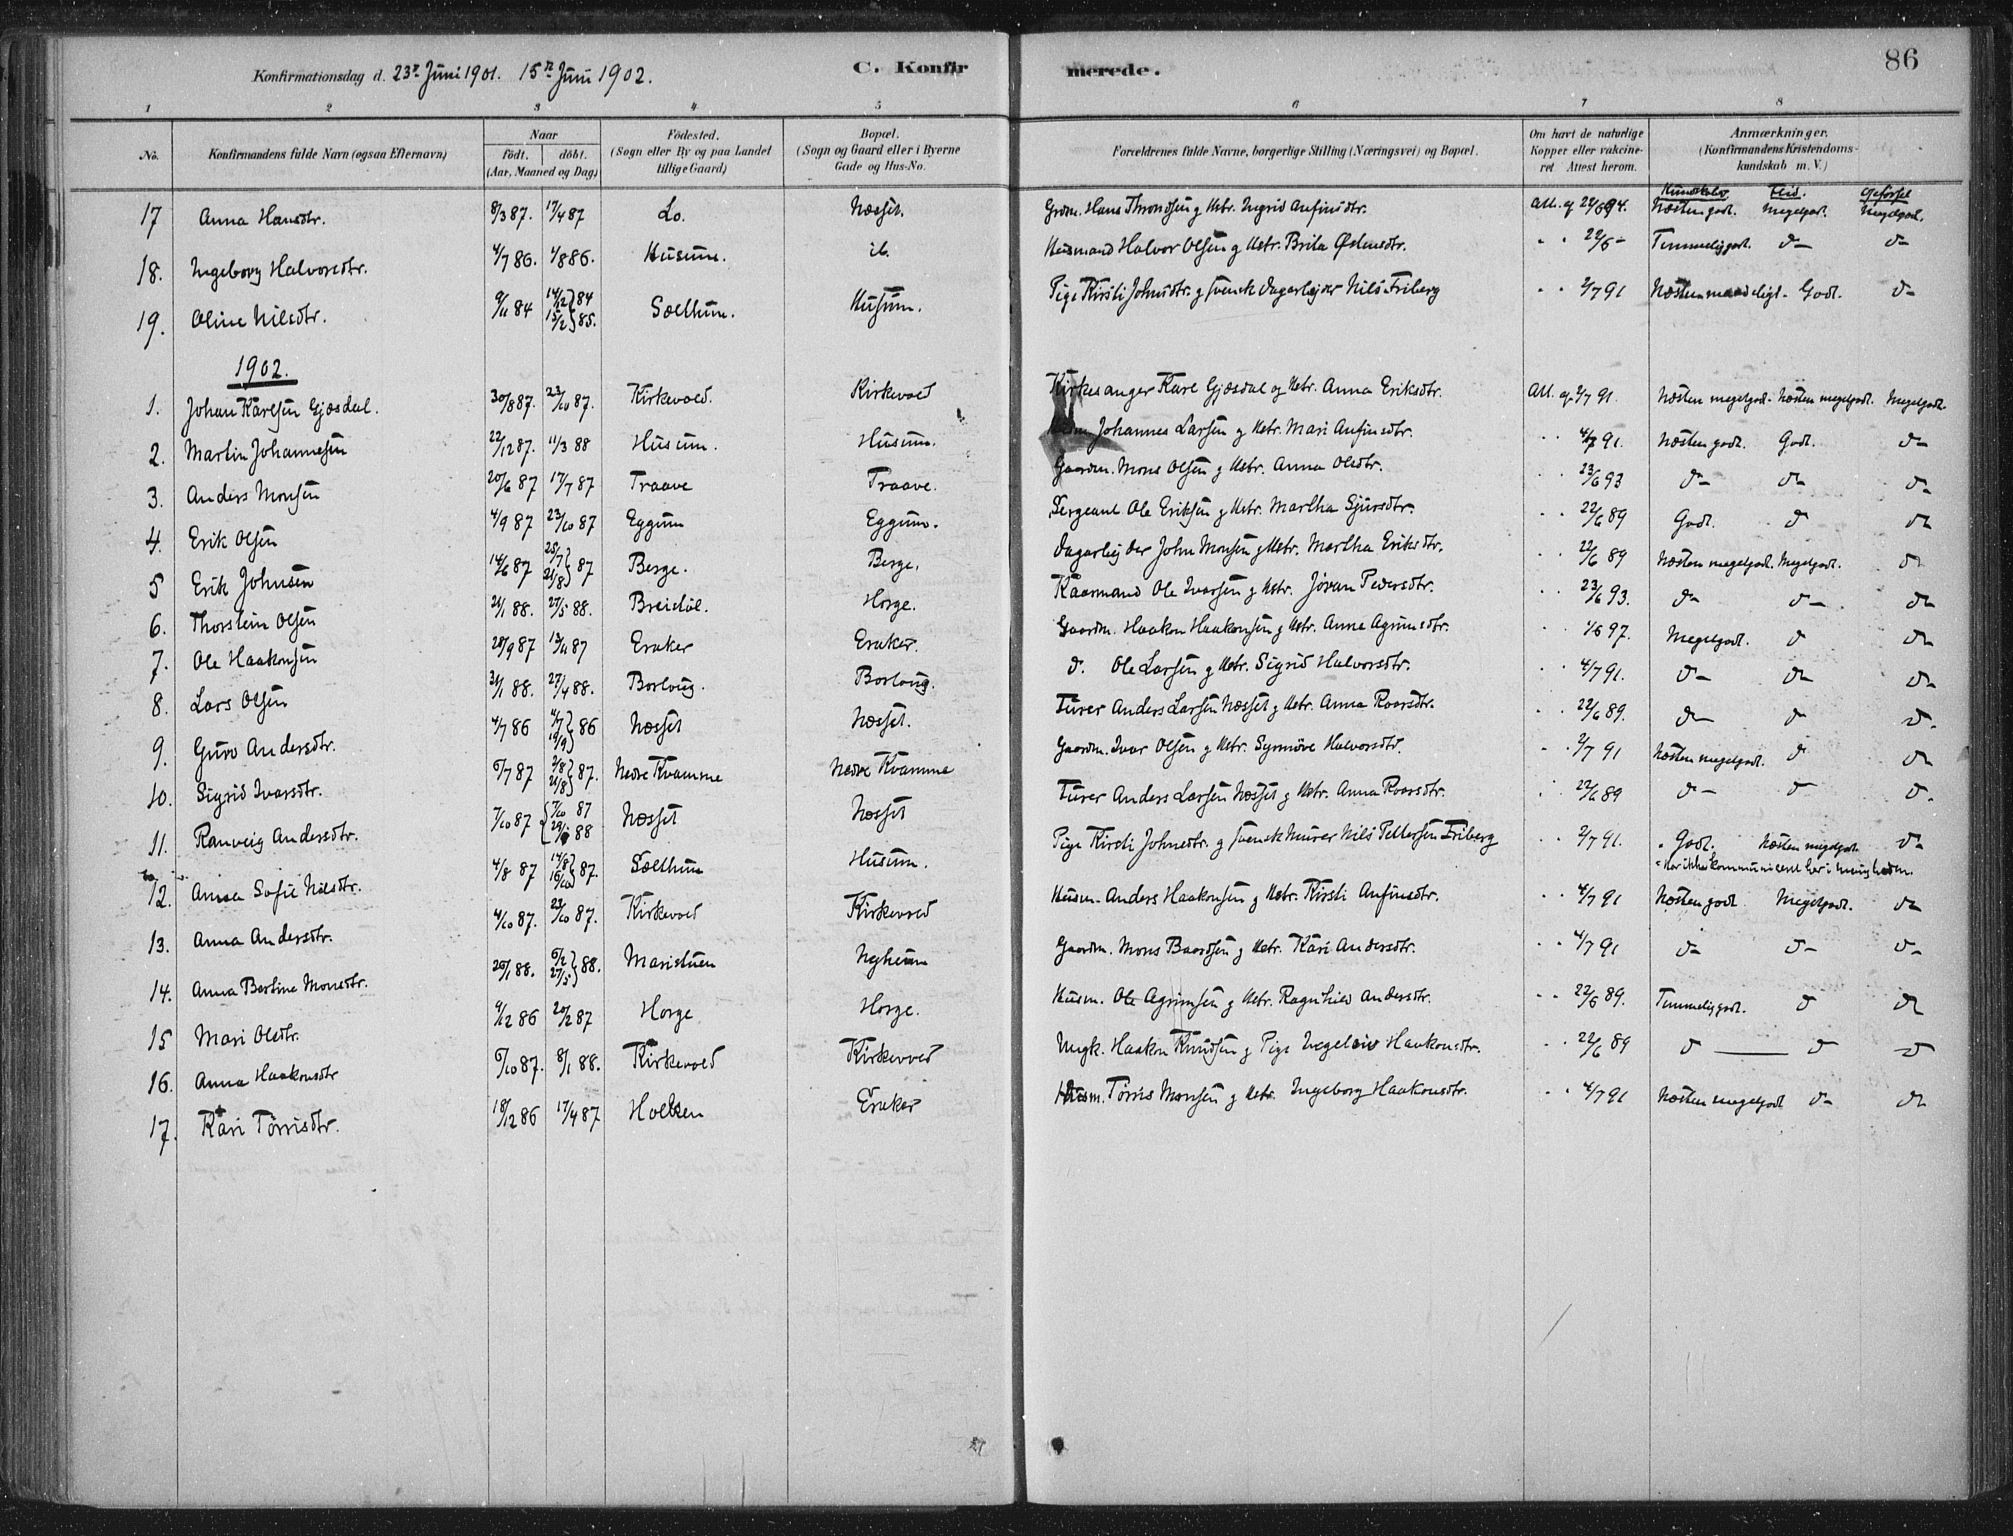 86
Konfirmationsdag d. 23de Juni 1901. 15de Juni 1902. C. Konfirmerede.
1 2 3 4 5 6 7 8
No. Konfirmandens fulde Navn (ogsaa Efternavn) Naar født. døbt. (Aar, Maaned og Dag) Fødested. (Sogn eller By og paa Landet tillige Gaard) Bopæl. (Sogn og Gaard eller i Byerne Gade og Hus-No. Forældrenes fulde Navne, borgerlige Stilling (Næringsvei) og Bopæl. Om havt de naturlige Kopper eller vakcineret Attest herom. Anmærkninger. (Konfirmandens Kristendomskundskab m. V.)
Kundskab. Flid. Opførsel
17 Anna Hansdtr. 8/3 87. 17/4 87 Lo. Næsset. Grdm. Hans Throndsen og Hstr. Ingrid Anfinsdtr. Att. af 22/6 94. Næsten godt. Megetgodt. Megetgodt.
18. Ingeborg Halvorsdtr. 4/7 86. 1/8 86. Husum. ib. Husmand Halvor Olsen og Hstr. Brita Østensdtr. " " 22/6 - Temmelig godt. do do
19. Oline Nilsdtr. 9/11 84 14/12 84 15/2 85. Sælthum. Husum. Pige Kirsti Johnsdtr. og svensk Dagarbejder Nils Friberg " " 2/7 91 Næsten maadeligt. Godt. do
1902.
1. Johan Karlsen Gjesdal. 30/8 87. 23/10 87. Kirkevold. Kirkevold Kirkesanger Karl Gjesdal og Hstr. Anna Eriksdtr. Att. af 2/7 91. Næsten megetgodt. Næsten megetgodt. Megetgodt.
2. Martin Johannesen 22/12 87. 11/3 88 Husum. Husum. Johannes Larsen og Hstr. Mari Anfinsdtr. " " 4/7 91. Næsten godt. Godt. do
3. Anders Monsen 20/6 87 17/7 87 Traave Traave. Gaardm. Mons Olsen og Hstr. Anna Olsdtr. " " 23/6 93 do do do
4. Erik Olsen 4/9 87 23/10 87 Eggum Eggum. Sergeant Ole Eriksen og Hstr. Martha Sjursdtr. " " 22/6 89 Godt. do do
5 Erik Johnsen 14/6 87 25/7 21/8 87 Berge. Berge. Dagarbejder John Monsen og Hstr. Martha Eriksdtr. " " 22/6 89 Næsten megetgodt. Megetgodt. do
6. Thorstein Olsen 21/1 88. 27/5 88. Breidøl. Horge. Kaarmand Ole Ivarsen og Hstr. Jøran Pedersdtr. " " 23/6 93. do do do
7. Ole Haakonsen 28/9 87 13/11 87 Eraker Eraker. Gaardm. Haakon Haakonsen og Hstr. Anna Agrimsdtr. " " 1/6 97. Megetgodt. do do
8. Lars Olsen 31/1 88. 27/4 88. Borlaug. Borlaug. do. Ole Larsen og Hstr. Sigrid Halvorsdtr. " " 4/7 91. do do do
9. Guro Andersdtr. 4/7 86 4/7 19/9 86 Næsset Næsset. Furer Anders Larsen Næsset og Hstr. Anna Roarsdtr. " " 22/6 89. do do do
10. Sigrid Ivarsdtr. 6/7 87 2/8 21/8 87. Nedre Kvamme Nedre Kvamme Gaardm. Ivar Olsen og Hstr. Synnøve Halvorsdtr. " " 2/7 91 Næsten megetgodt. do do
11. Ranveig Andersdtr. 7/10 87 7/10 87 29/1 88 Næsset Næsset Furer Anders Larsen Næsset og Hstr. Anna Roarsdtr. " " 22/6 89 do do do
12. Anna Sofie Nilsdtr. 4/8 87 14/8 16/10 87. Sælthum Husum. Pige Kirsti Johnsdtr. og svensk Murer Nils Pettersen Friberg " " 2/7 91. Godt. Næsten megetgodt. do
Har ikke kommuniceret her i menigheden.
13. Anna Andersdtr. 4/10 87. 23/10 87. Kirkevold Kirkevold Husm. Anders Haakonsen og Hstr. Kirsti Anfinsdtr. " " 4/7 91 Næsten godt Megetgodt. do
14. Anna Bertine Monsdtr. 26/1 88. 6/2 27/5 88. Maristuen Nyheim Gaardm. Mons Baardsen og Hstr. Kari Andersdtr. " " 4/7 91 do do do
15 Mari Olsdtr. 9/12 86 20/2 87 Horge Horge. Husm. Ole Agrimsen og Hstr. Ragnhild Andersdtr. " " 22/6 89. Temmelig godt. do do
16. Anna Haakonsdtr 6/10 87. 8/1 88. Kirkevold Kirkevold Ungk. Haakon Knudsen og Pige Ingeleiv Haakonsdtr. " " 22/6 89 do do do
17. Kari Tørrisdtr. 18/12 86 17/4 87 Eraker Husm. Tørris Monsen og Hstr. Ingeborg Haakonsdtr. " " 4/7 91 Næsten megetgodt do do